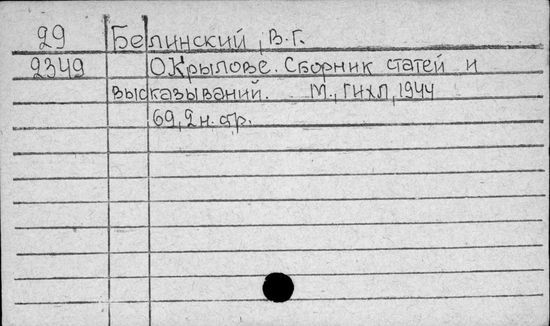 29 Белинский, В.Г.
2349 О Крылове. Сборник статей и
высказываний. М., ГИХЛ, 1944
69, 2 н. стр.